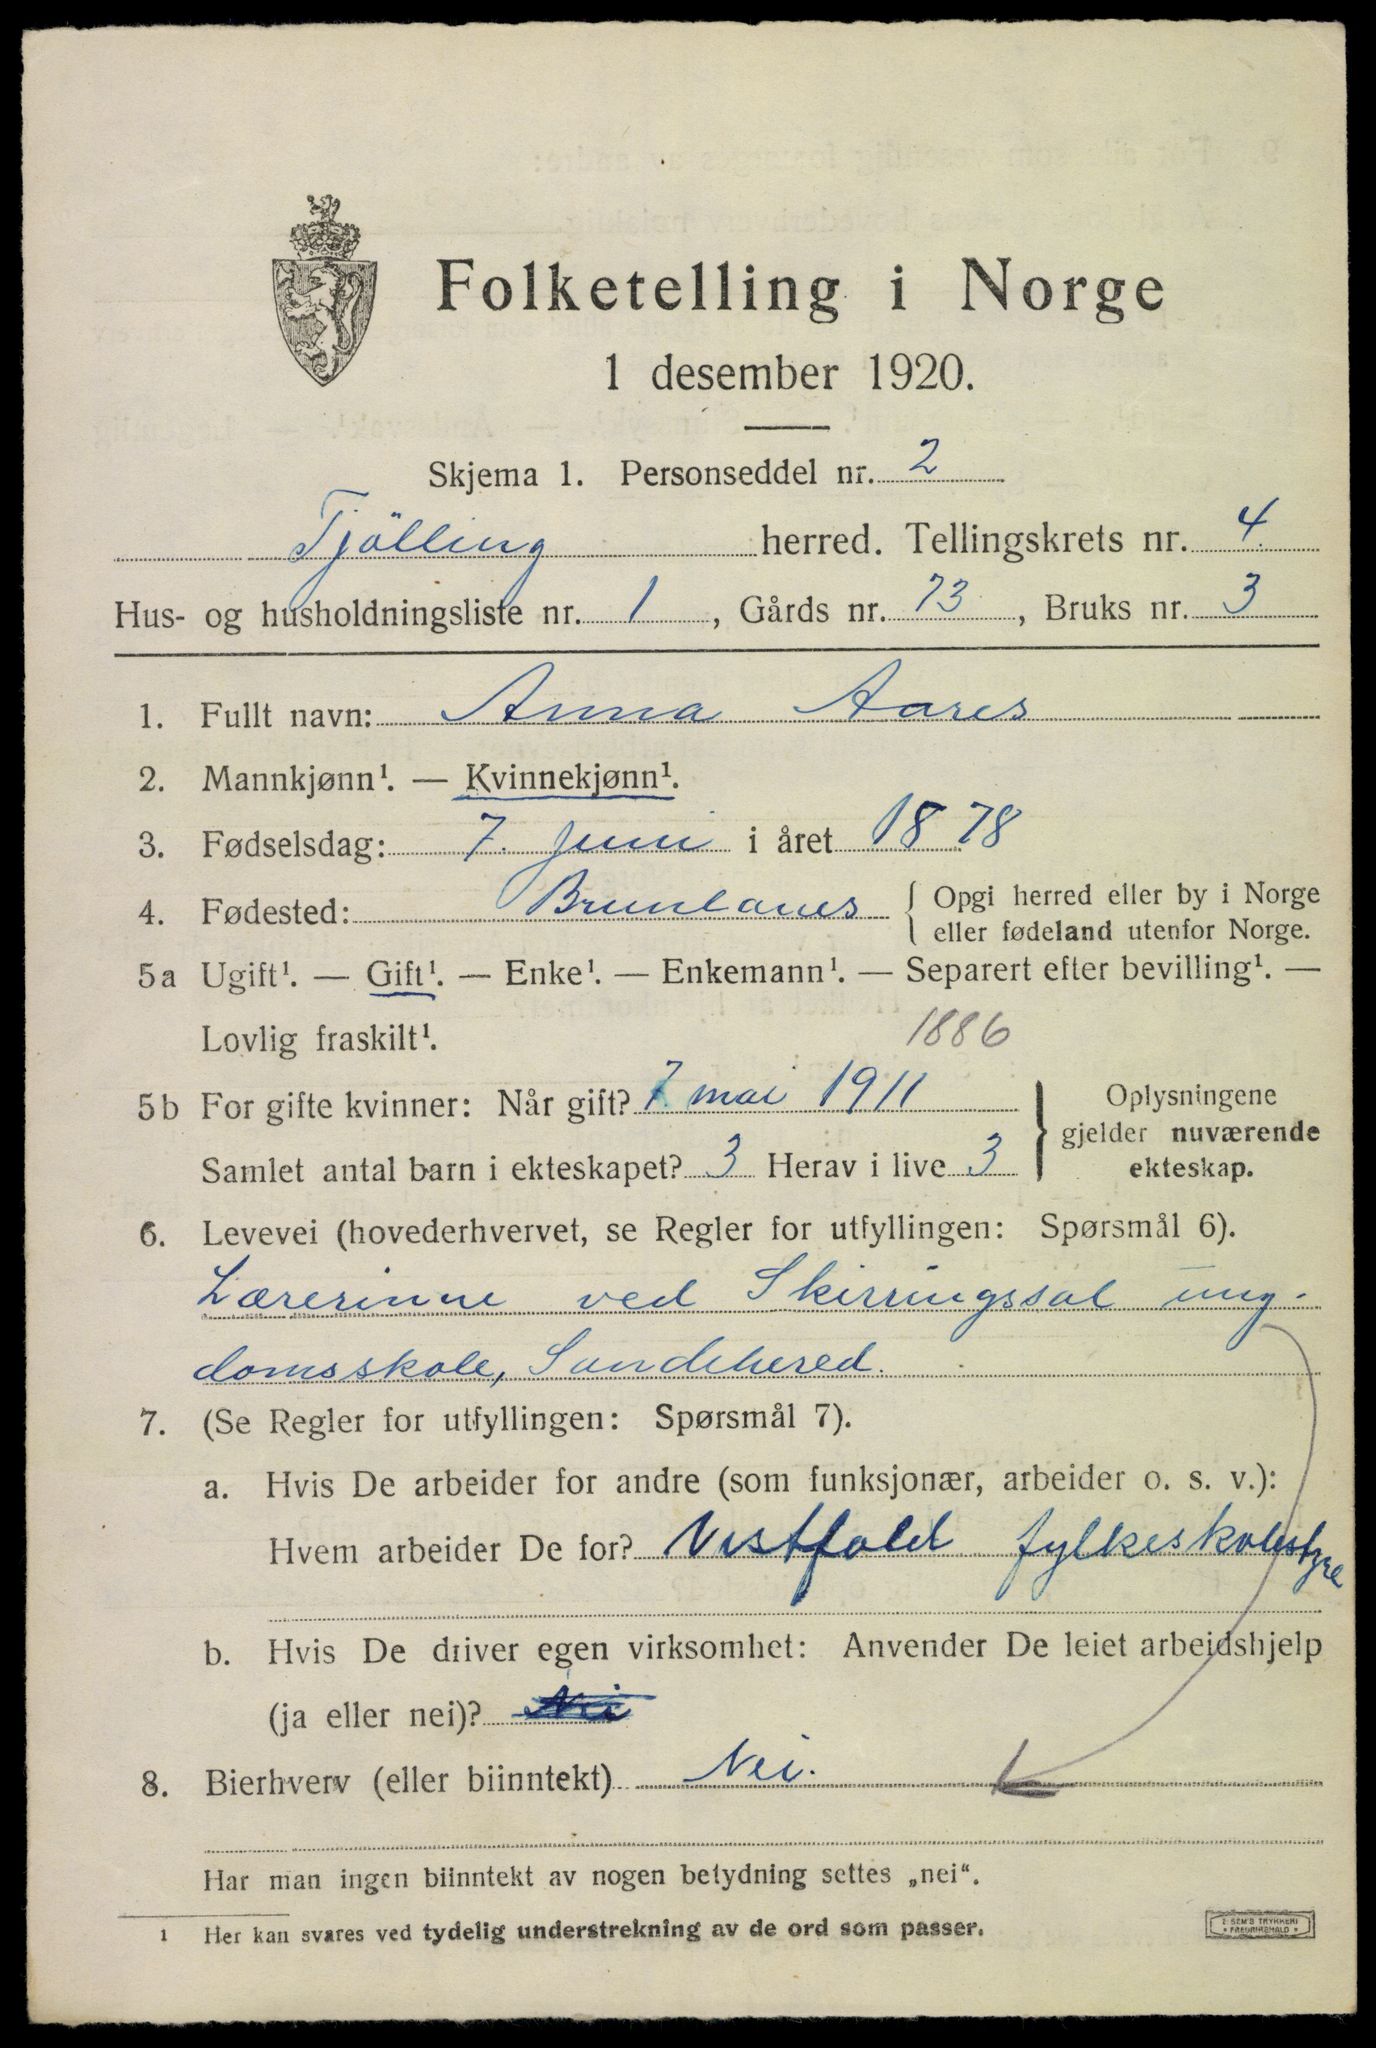 Folketelling i Norge
1 desember 1920.
Skjema 1. Personseddel nr. 2
Tjölling herred. Tellingskrets nr. 4.
Hus- og husholdningsliste nr. 1, Gårds nr. 73, Bruks nr. 3
1. Fullt navn: Anna Aares
2. Mannkjønn¹. — Kvinnekjønn¹.
3. Fødselsdag: 7. juni i året 1878
4. Fødested: Brunlanes { Opgi herred eller by i Norge
eller fødeland utenfor Norge.
5a Ugift¹. — Gift¹. — Enke¹. — Enkemann¹. — Separert efter bevilling¹. —
Lovlig fraskilt¹. 1886
5b For gifte kvinner: Når gift? 7. mai 1911
Samlet antal barn i ekteskapet? 3 Herav i live 3
} Oplysningene
gjelder nuværende
ekteskap.
6. Levevei (hovederhvervet, se Regler for utfyllingen: Spørsmål 6).
Lærerinne ved Skiringssal ung-
domsskole, Sandehered.
7. (Se Regler for utfyllingen: Spørsmål 7).
a. Hvis De arbeider for andre (som funksjonær, arbeider o. s. v.):
Hvem arbeider De for? Vestfold fylkeskolestyre
b. Hvis De driver egen virksomhet: Anvender De leiet arbeidshjelp
(ja eller nei)? Nei
8. Bierhverv (eller biinntekt) Nei.
Har man ingen biinntekt av nogen betydning settes „nei“.
¹ Her kan svares ved tydelig understrekning av de ord som passer.
E. SEM'S TRYKKERI
* FREDRIKSHALD *